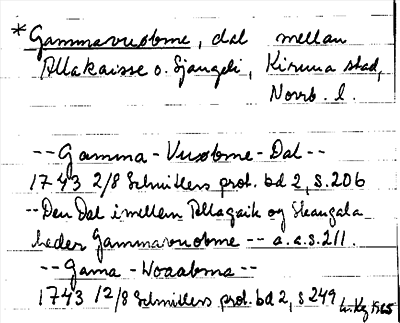 *Gammavuobme, dal mellan
Allakaisse o. Sjangeli, Kiruna stad,
Norrb. l.
-- Gamma - Vuobme - Dal --
1743 2/8 Schnitlers prot. bd 2, s. 206
-- Den Dal imellem Allagaik og Skangala
heder Gammavuobme -- a.a. s. 211.
-- Gama - Woaabma --
1743 12/8 Schnitlers prot. bd 2, s 249 1965